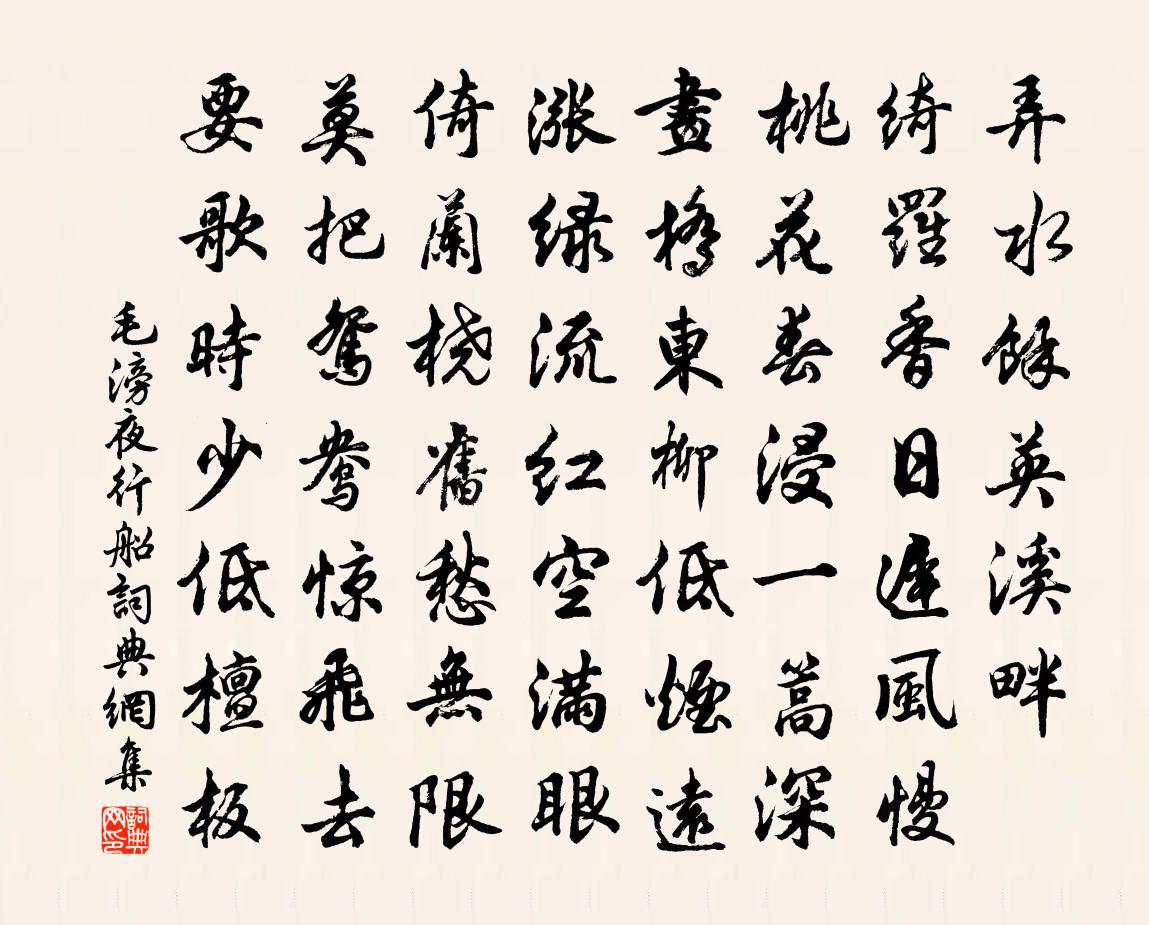 弄水餘英溪畔
綺羅香日遲風慢
桃花春浸一篙深
畫橋東柳低煙遠
漲綠流紅空滿眼
倚蘭橈舊愁無限
莫把鴛鴦惊飛去
要歌時少低檀板
毛滂夜行船詞典網集
詞典网印